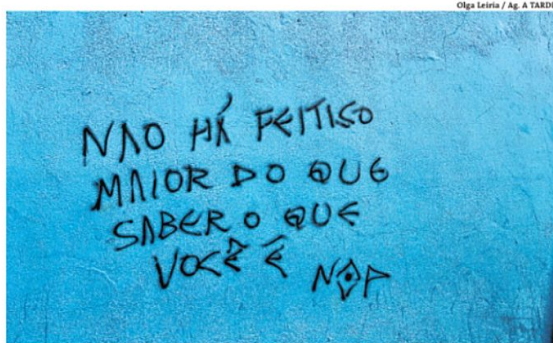 Olga Leiria / Ag. A TARDE
NÃO HÁ FEITISO
MAIOR DO QUE
SABER O QUE
VOCÊ É
NOP